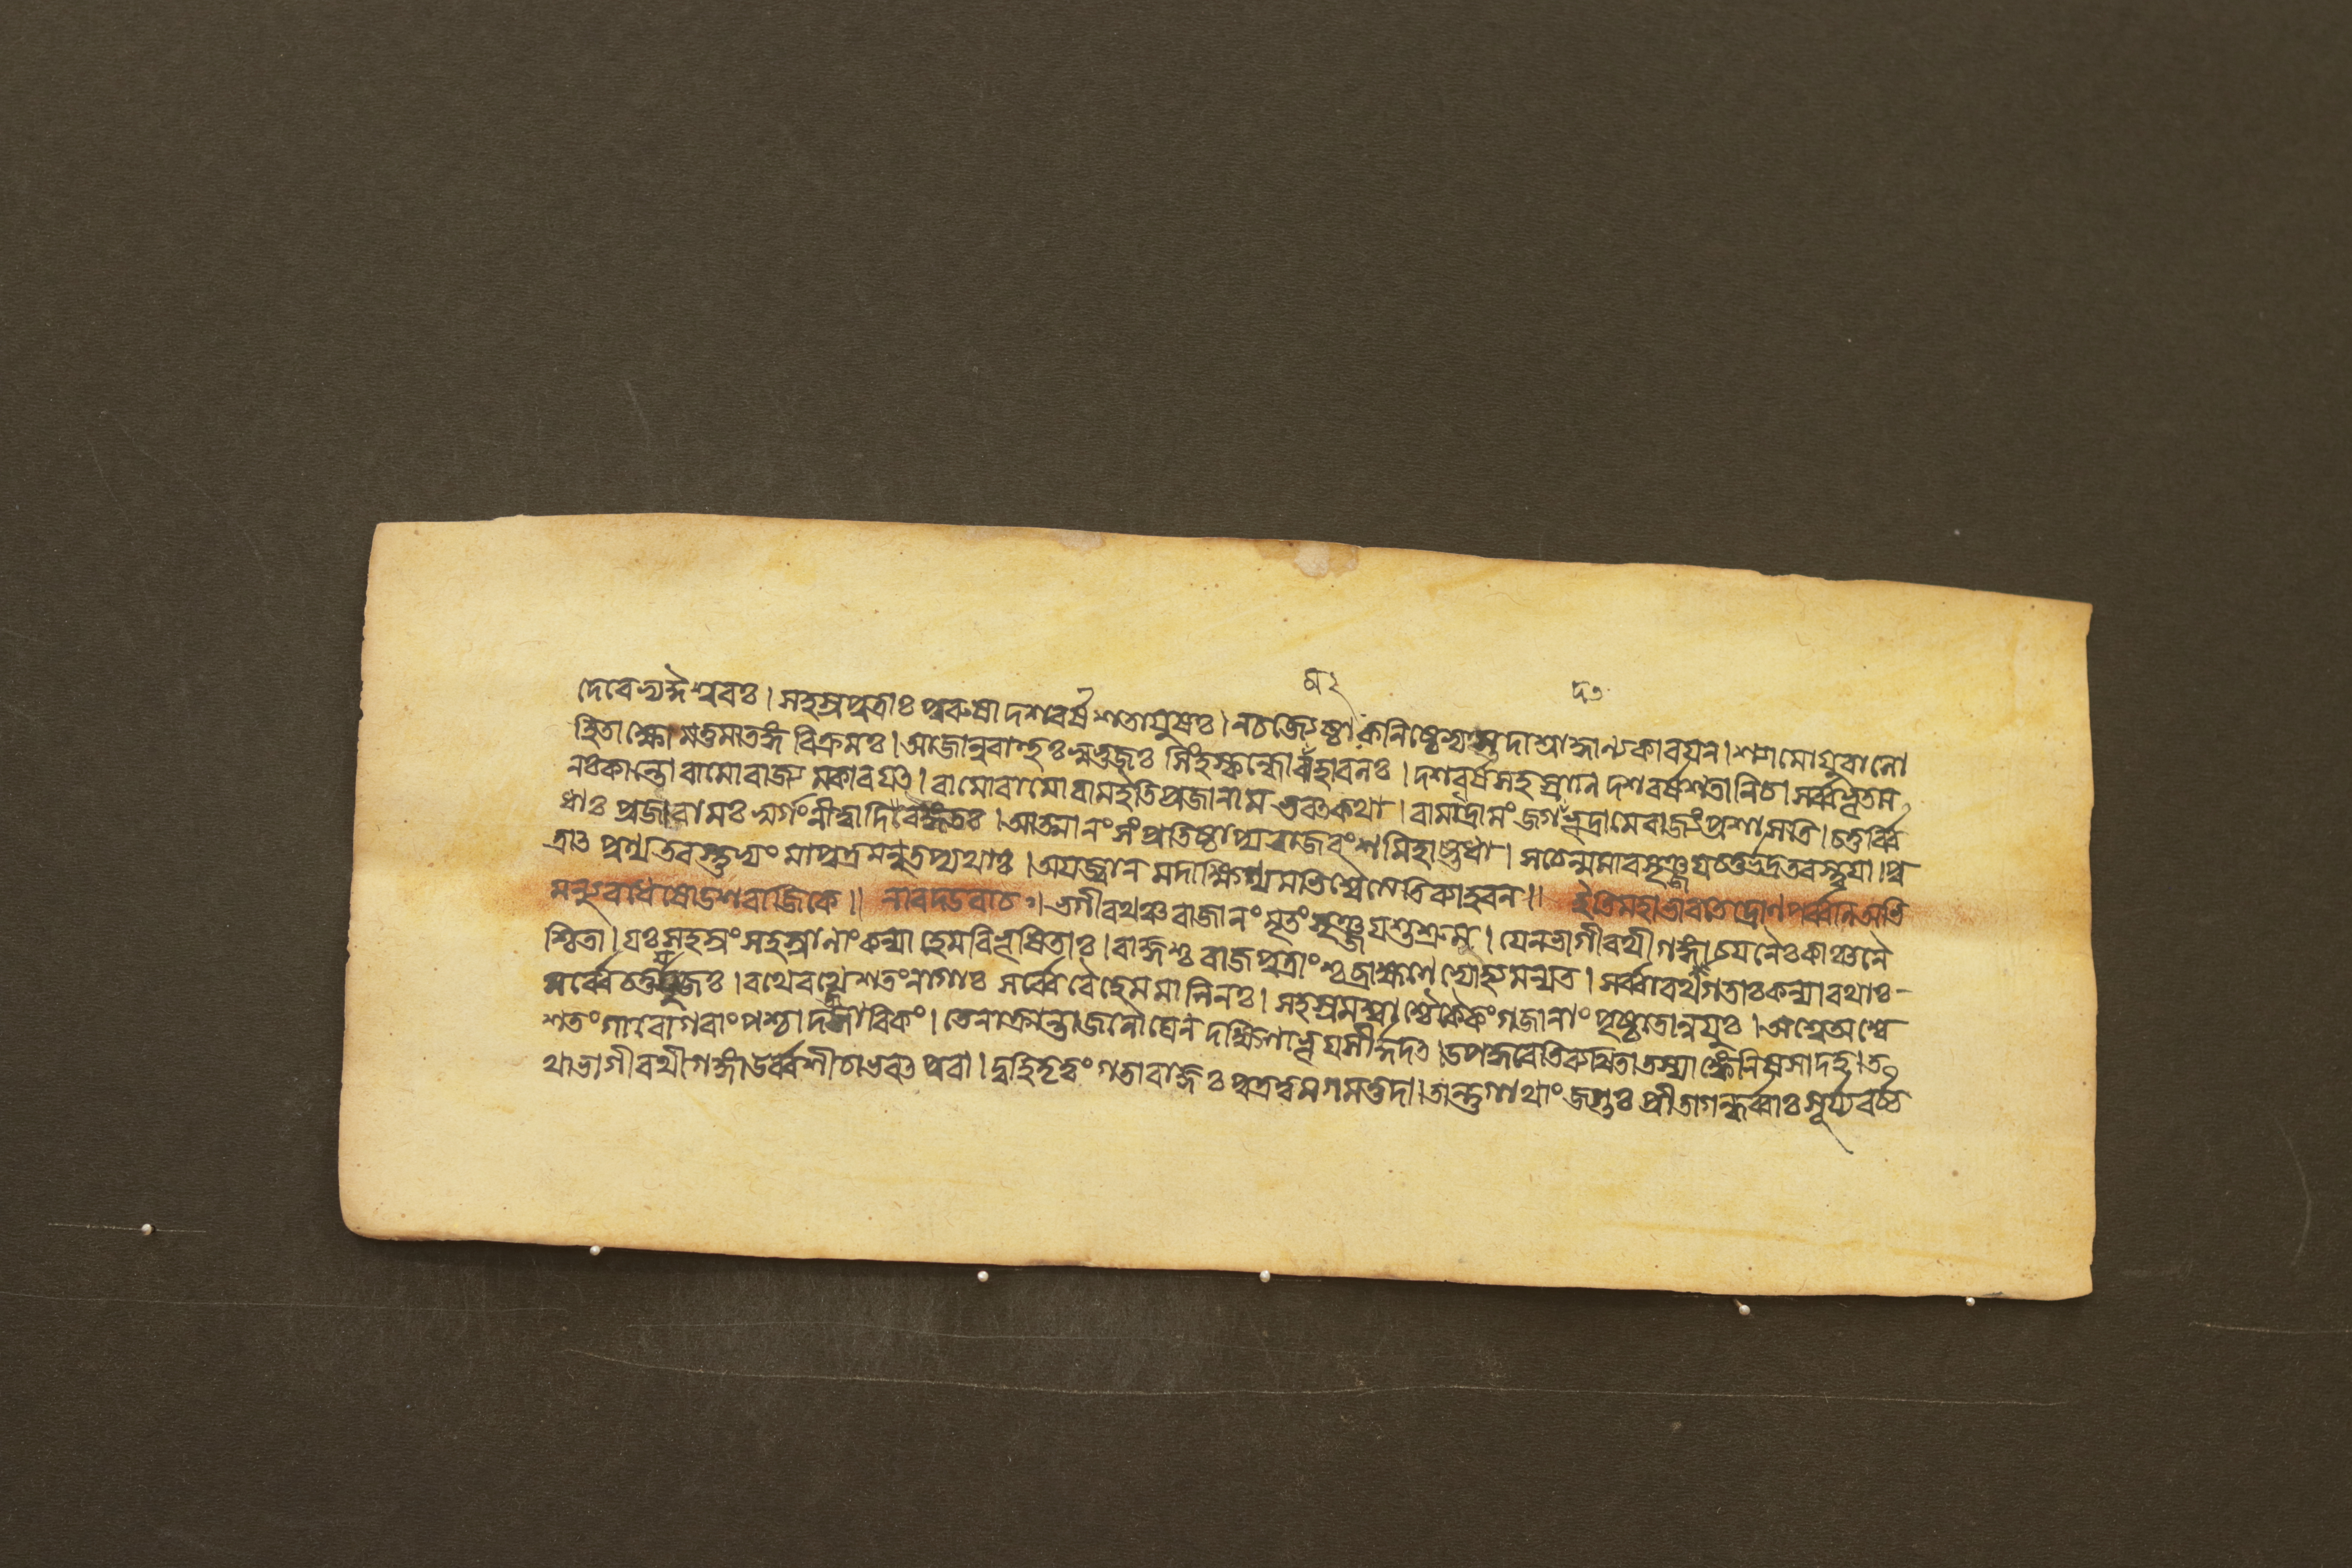 সহস্রপুত্রাঃ পুরুষা দশবর্ষশতাযুষঃ। নচজ্যেষ্ঠাঃ কনিষ্ঠেভ্যস্তদাশ্রাদ্ধান্যকারযন। শ্যামোযুবালো
হিতাক্ষোমত্তমাতঙ্গবিক্রমঃ। আজানুবাহুঃসুভুজঃ সিংহস্কন্ধোমহাবলঃ। দশবর্ষসহস্রাণি দশবর্ষশতানিচ। সর্ব্বভূতম
নঃকান্তো রামোরাজ্যমকারযৎ। রামোরামোরামইতিপ্রজানামভবৎকথা। রামাদ্রামংজগদভূদ্রামেরাজ্যংপ্রশাসতি। চতুর্ব্বি
ধাঃ প্রজারামঃ স্বর্গংনীত্বাদিবংগতঃ। আত্মানংসংপ্রতিষ্ঠাপ্যরাজবংশমিহাষ্টধা। সচেন্মমারসৃঞ্জযচতুর্ভদ্রতরস্ত্বযা। পু
ত্রাৎ পুণ্যতরস্তুভ্যং মাপুত্রমনুতপ্যথাঃ। অযজ্বানমদাক্ষিণ্যমভিশ্বৈত্যেতিব্যাহরন॥ ইতিমহাভারতেদ্রোণপর্ব্বণিঅভি
মন্যুবধেষোডশরাজিকে॥ নারদউবাচ। ভগীরথঞ্চরাজানংমৃতংসৃঞ্জযশুশ্রুম। যেনভাগীরথীগঙ্গাচযনৈঃকাঞ্চনৈ
শ্চিতা। যঃসহস্রংসহস্রাণাংকন্যাহেমবিভূষিতাঃ। রাজ্ঞশ্চরাজপুত্রাংশ্চব্রাহ্মণেভ্যোহ্যমন্যত। সর্ব্বারথগতাঃকন্যারথাঃ
সর্ব্বেচতুর্যুজঃ। রথেরথেশতংনাগাঃ সর্ব্বেবৈহেমমালিনঃ। সহস্রমশ্বাশ্চৈকৈকংগজানাংপৃষ্ঠতোন্বযুঃ। অশ্বেঅশ্বে
শতংগাবোগবাংপশ্চাদজাবিকং। তেনাক্রান্তাজনৌঘেন দক্ষিণাভূযসীর্দদৎ। উপহ্বরেতিব্যথিতাতস্যাঙ্কেনিষসাদহ। ত
থাভাগীরথীগঙ্গা উর্ব্বশীচাভবৎপুরা। দুহিতৃত্বংগতারাজ্ঞঃ পুত্রত্বমগমত্তদা। তান্তুগাথাংজগুঃ প্রীতাগন্ধর্ব্বাঃসূর্য্যবর্চ্চ